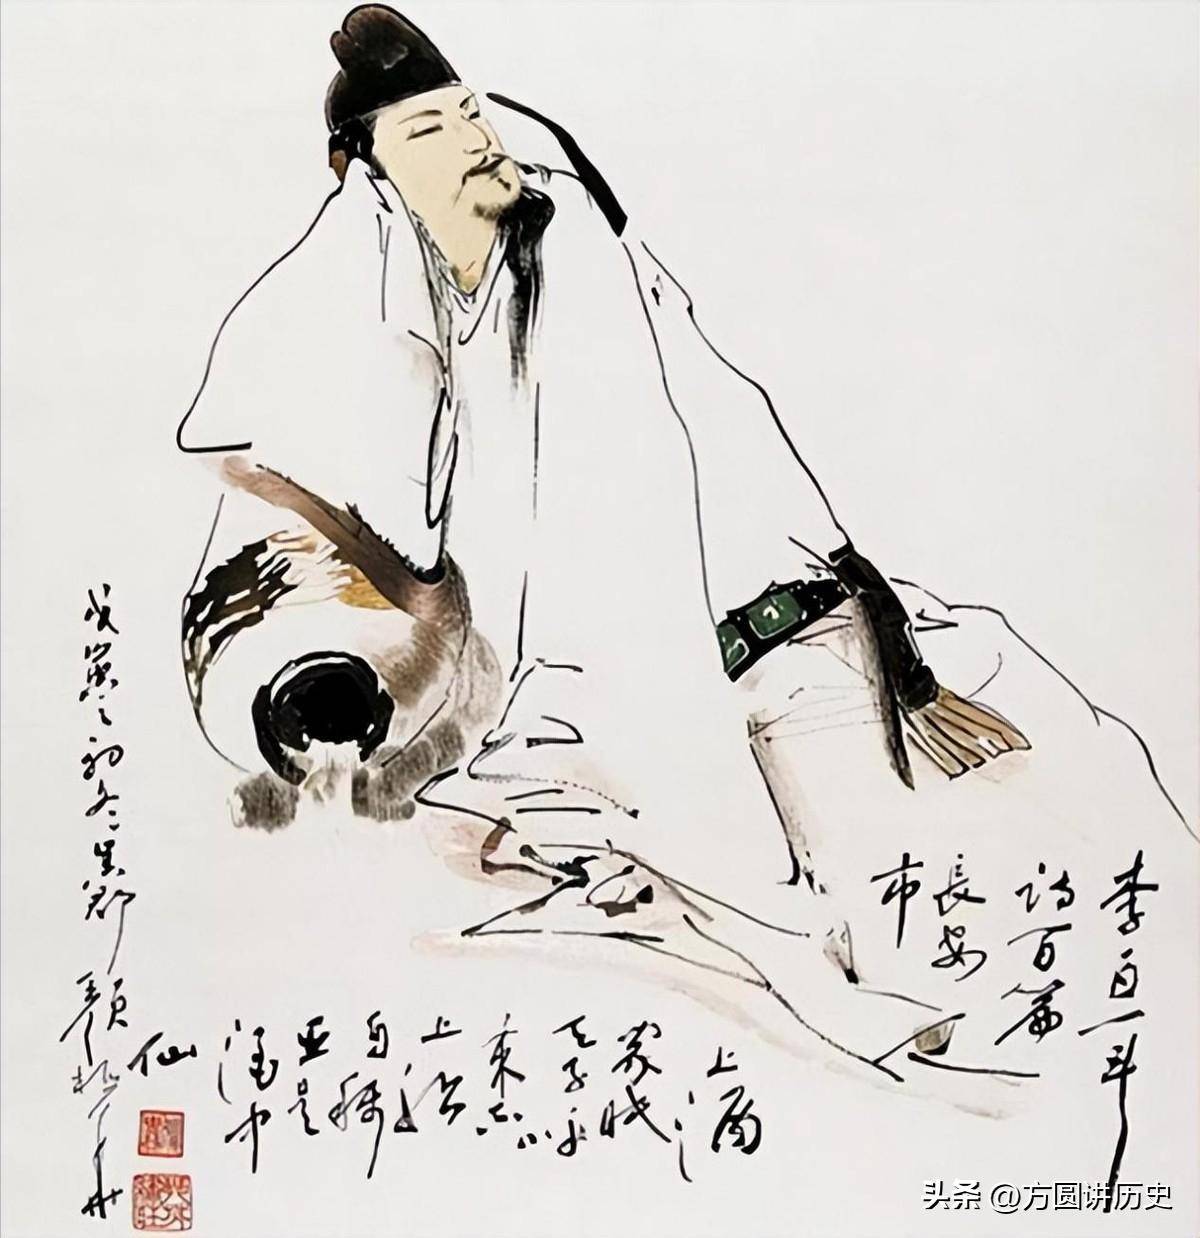 李白一斗
诗百篇
長安
市
上酒
家眠
天子呼
来不
上船
自稱
臣是
酒中
仙
戊寅之初冬吴郡顏梅華
头条 @方圆讲历史